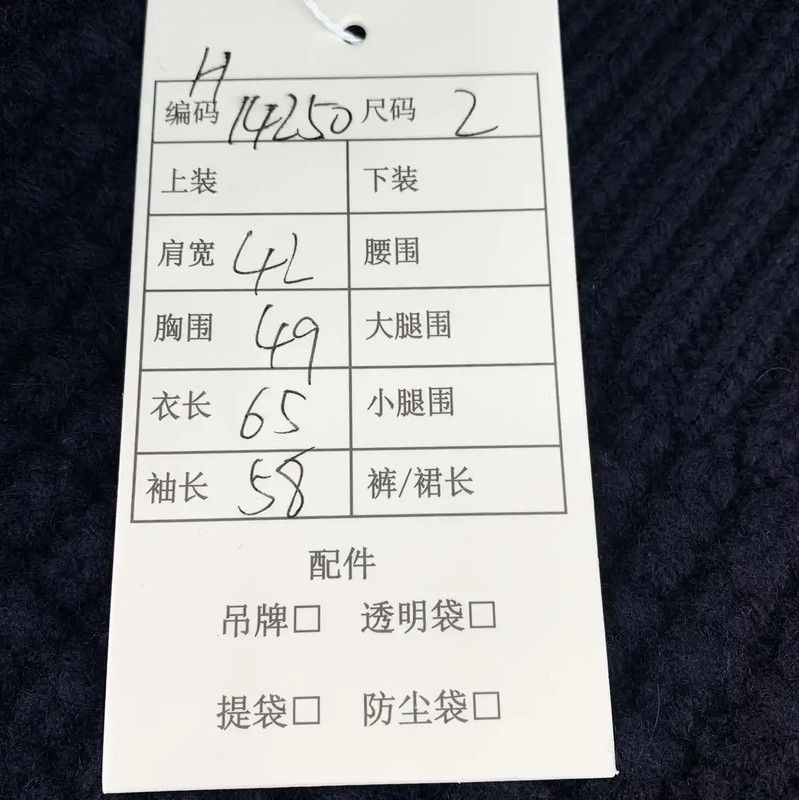 H
编码 14250 尺码 2
上装 下装
肩宽 42 腰围
胸围 49 大腿围
衣长 65 小腿围
袖长 58 裤/裙长
配件
吊牌□ 透明袋□
提袋□ 防尘袋□